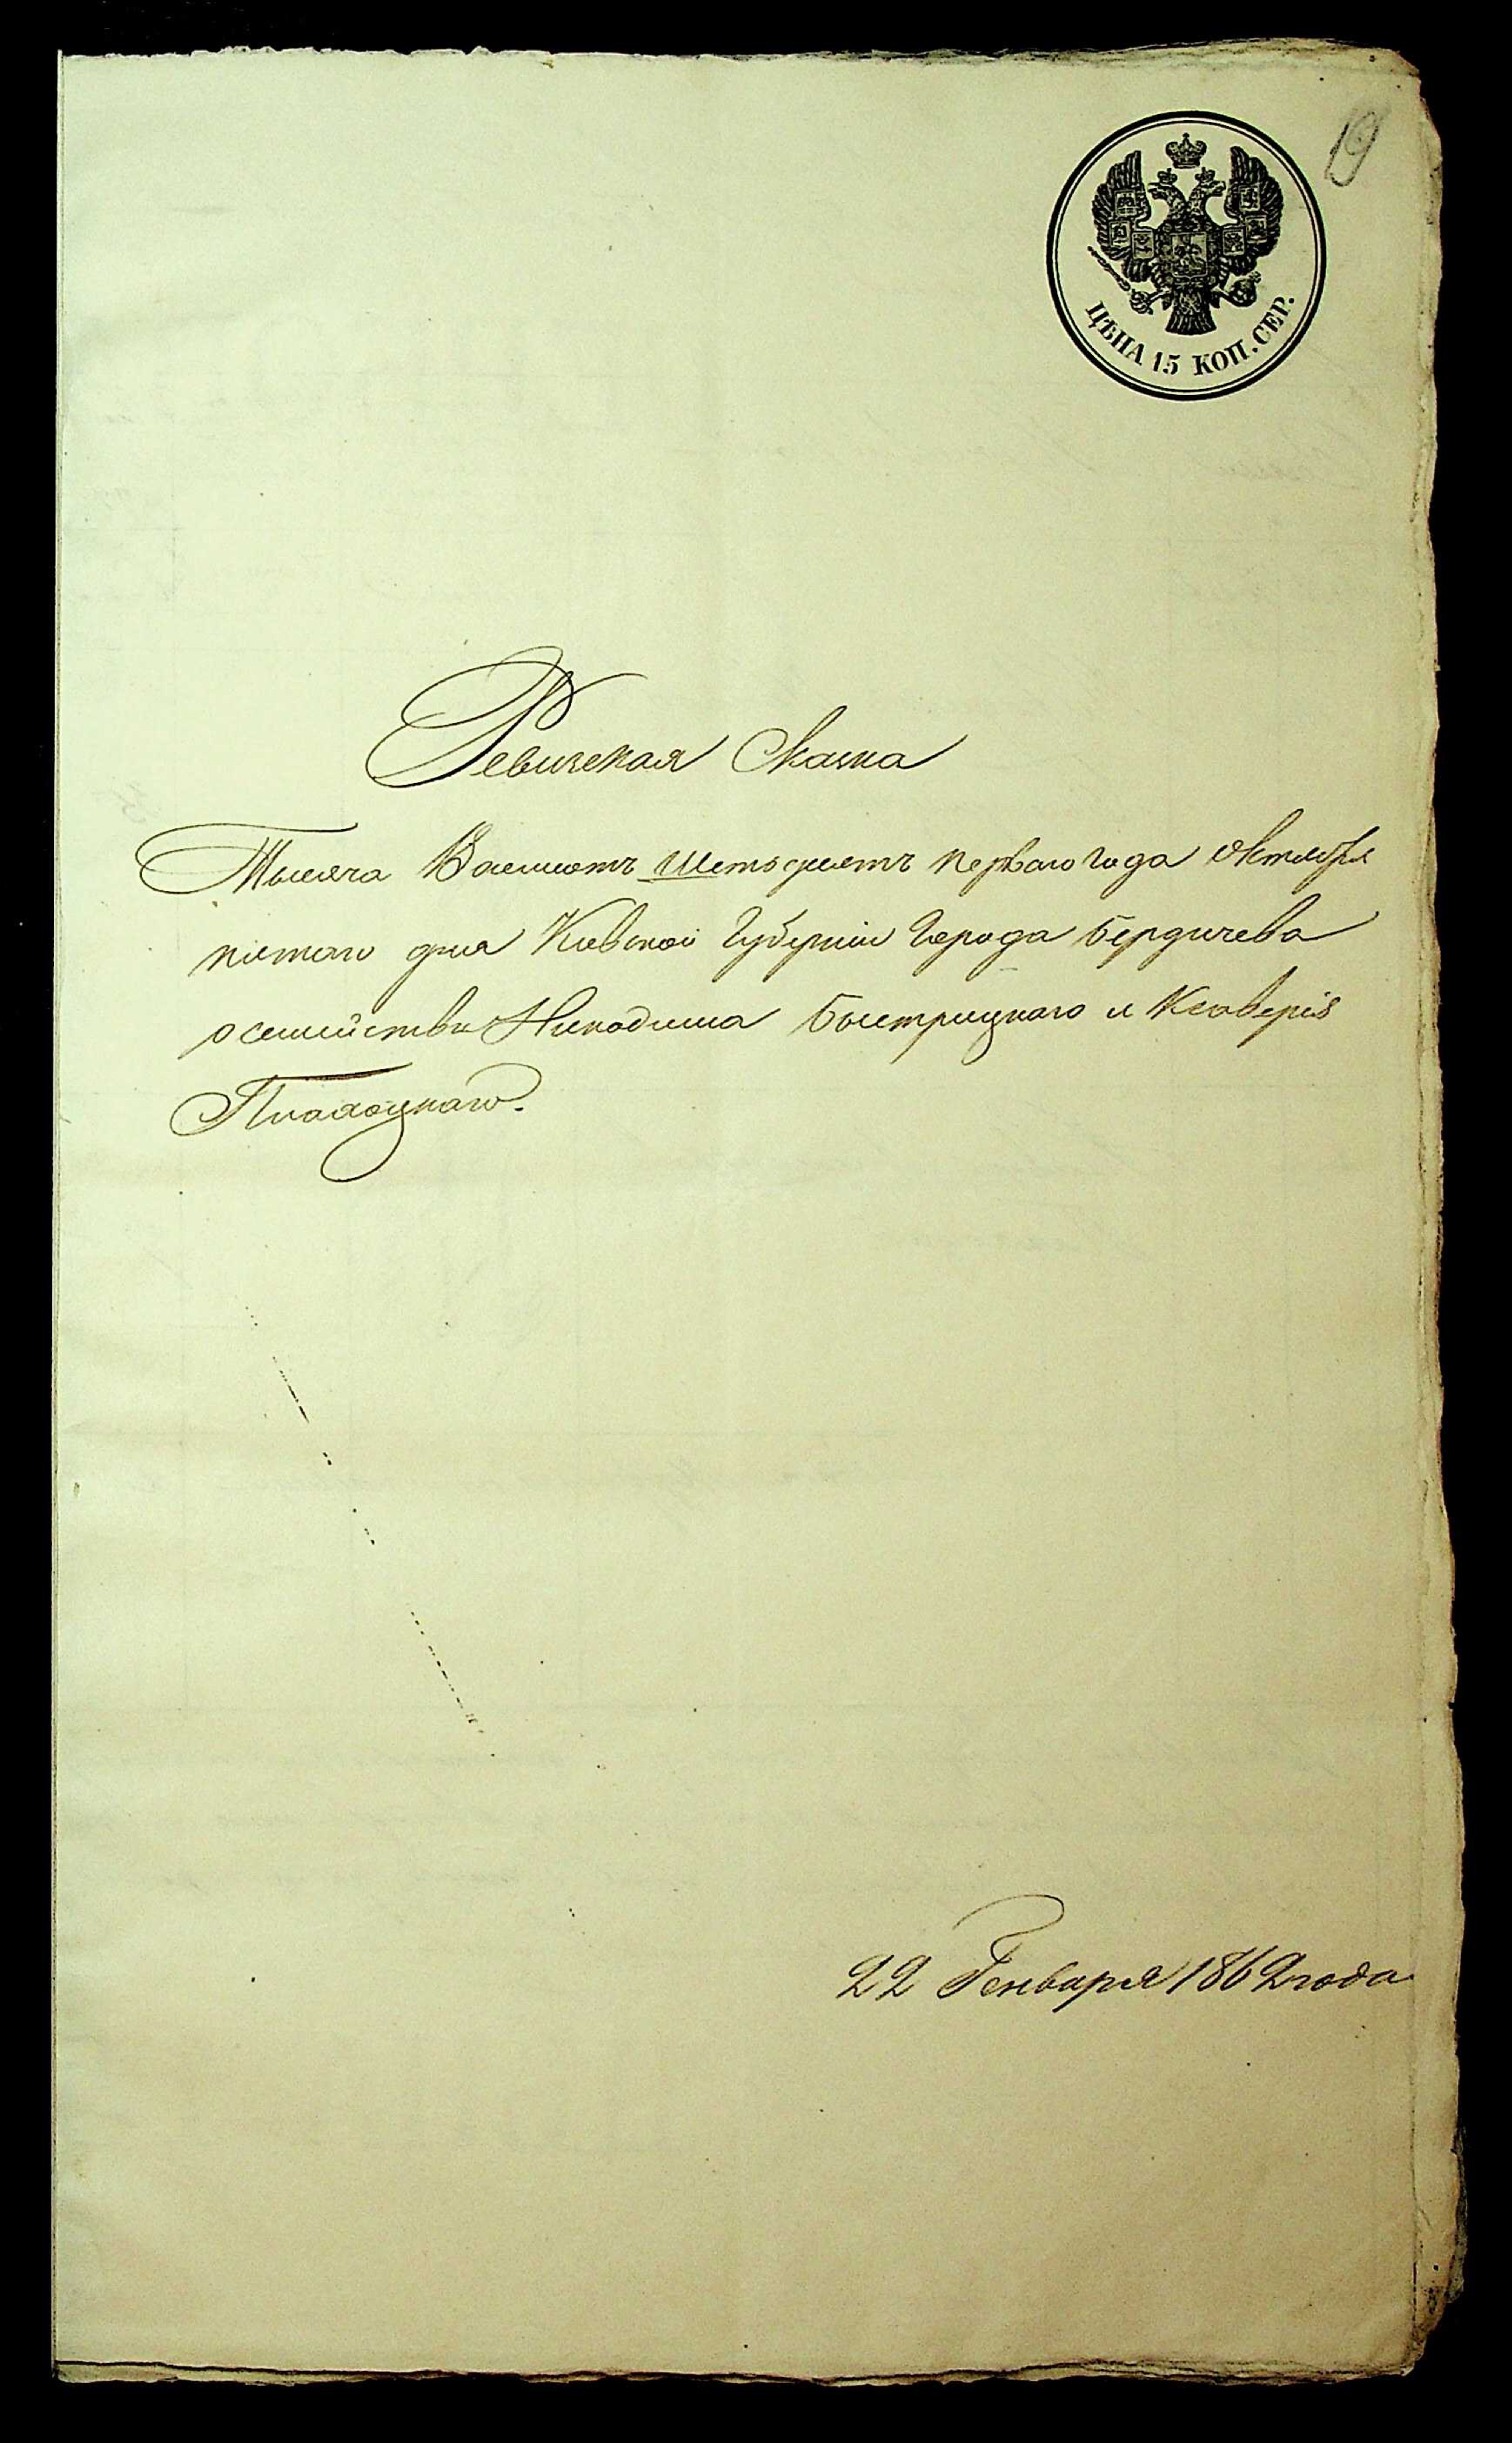 19
ЦѢНА 15 КОП. СЕР.
Ревизская Сказка
Тысяча Восемсотъ шестьдесятъ перваго года октября
пятаго дня Кіевской Губерніи Города Бердичева
о семействѣ Никодима Быстрицкаго и Ксаверія
22 Генваря 1862 года